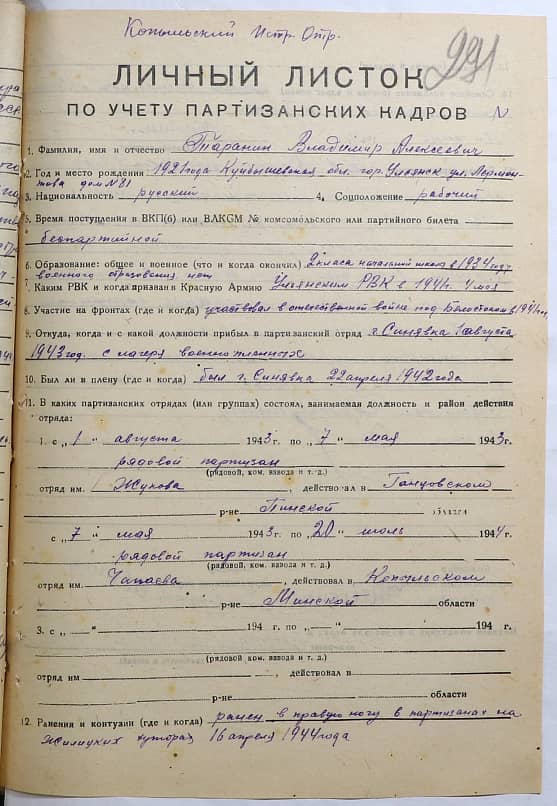 Копыльский Истр. Отр.
291
ЛИЧНЫЙ ЛИСТОК
ПО УЧЕТУ ПАРТИЗАНСКИХ КАДРОВ
1. Фамилия, имя и отчество Таранин Владимир Алексеевич
2. Год и место рождения 1921 года Куйбышевская обл. гор. Улянск ул. Лермон-
това дом № 81
3. Национальность русский 4. Соцположение рабочий
5. Время поступления в ВКП(б) или ВЛКСМ № комсомольского или партийного билета
безпартийной
6. Образование: общее и военное (что и когда окончил) 2 класа начальний школ в 1934 году
военного образования нет
7. Каким РВК и когда призван в Красную Армию Улянским РВК в 1941 г. 4 мая
8. Участие на фронтах (где и когда) участвовал в отечественой войне под Белостоком в 1941 году
9. Откуда, когда и с какой должности прибыл в партизанский отряд г. Синявка 1 августа
1943 год. с лагеря военопленных
10. Был ли в плену (где и когда) был г. Синявка 22 апреля 1942 года
11. В каких партизанских отрядах (или группах) состоял, занимаемая должность и район действия
отряда:
1. с „ 1 “ августа 1943 г. по „ 7 “ мая 1943 г.
рядовой партизан
(рядовой, ком. взвода и т. д.)
отряд им. Жукова , действовал в Ганцовском
р-не Пинской области
с „ 7 “ мая 1943 г. по „ 20 “ июль 1944 г.
рядовой партизан
(рядовой, ком. взвода и т. д.)
отряд им. Чапаева , действовал в Копыльском
р-не Минской области
3. с „ — “ 194 г. по „ — “ 194 г.
(рядовой, ком. взвода и т. д.)
отряд им , действовал в
р-не области
12. Ранения и контузии (где и когда) ранен в правую ногу в партизанах на
хуторах 16 апреля 1944 года